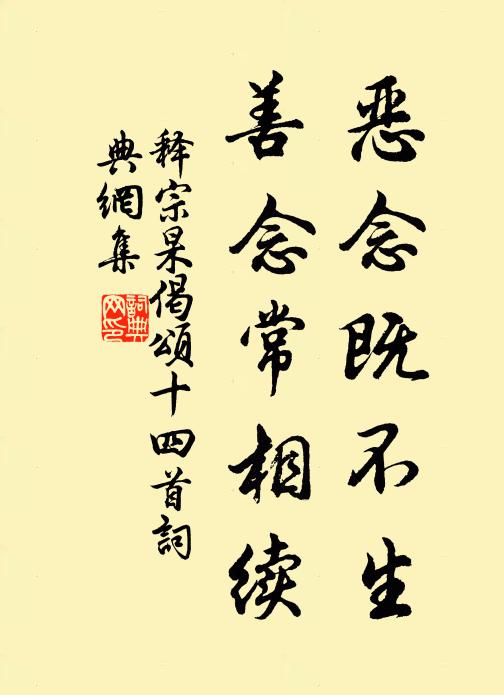 恶念既不生
善念常相续
释宗杲偈颂十四首詞
典網集
詞典
网印